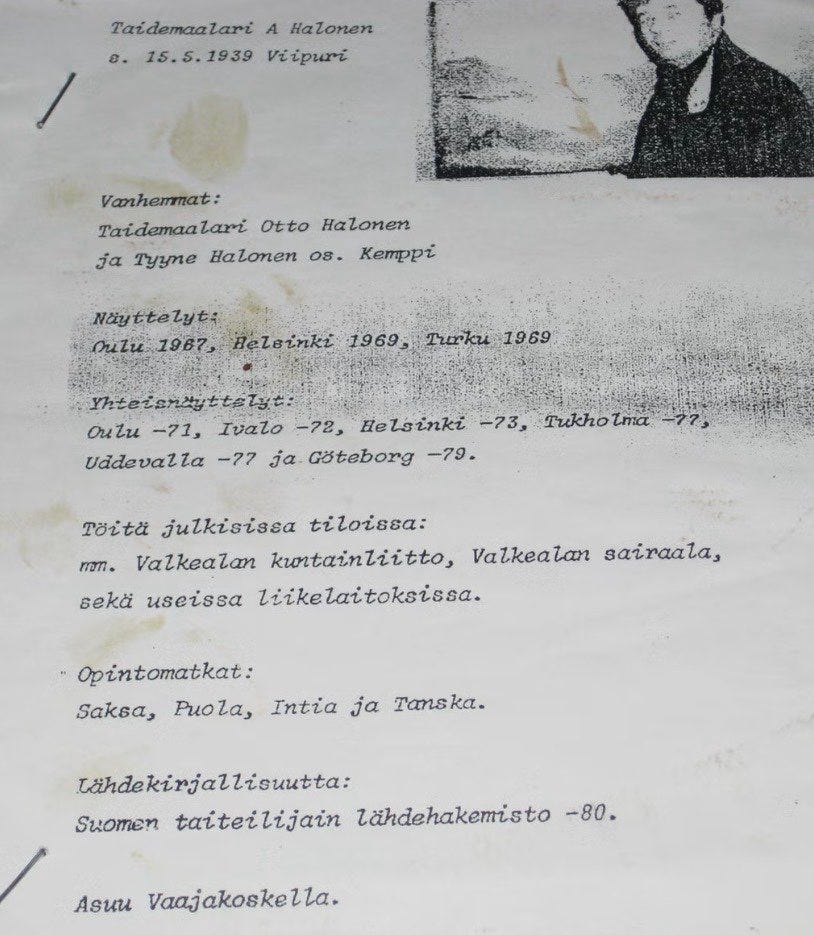 Taidemaalari A Halonen
s. 15.5.1939 Viipuri
Vanhemmat:
Taidemaalari Otto Halonen
ja Tyyne Halonen os. Kemppi
Näyttelyt:
Oulu 1967, Helsinki 1969, Turku 1969
Yhteisnäyttelyt:
Oulu -71, Ivalo -72, Helsinki -73, Tukholma -77,
Uddevalla -77 ja Göteborg -79.
Töitä julkisissa tiloissa:
mm. Valkealan kuntainliitto, Valkealan sairaala,
sekä useissa liikelaitoksissa.
Opintomatkat:
Saksa, Puola, Intia ja Tanska.
Lähdekirjallisuutta:
Suomen taiteilijain lähdehakemisto -80.
Asuu Vaajakoskella.